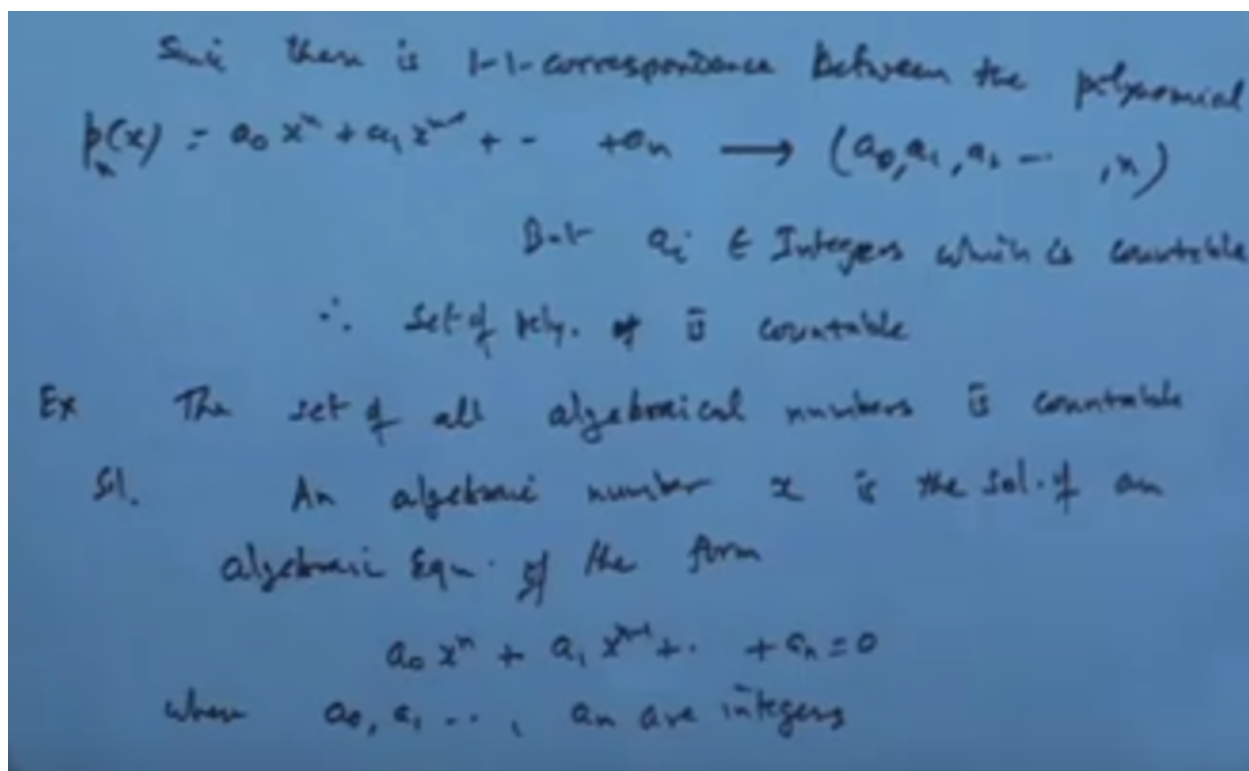 Since there is 1-1-correspondence between the polynomial
pₙ(x) = a₀xⁿ + a₁xⁿ⁻¹ + - + aₙ ⟶ (a₀, a₁, a₂ -- , n)
But aᵢ ∈ Integers which is countable
∴ Set of poly. is countable
Ex The set of all algebraical numbers is countable
Sol. An algebraic number x is the sol. of an
algebraic Equ. of the form
a₀xⁿ + a₁xⁿ⁻¹ + . + aₙ = 0
where a₀, a₁ -- , aₙ are integers